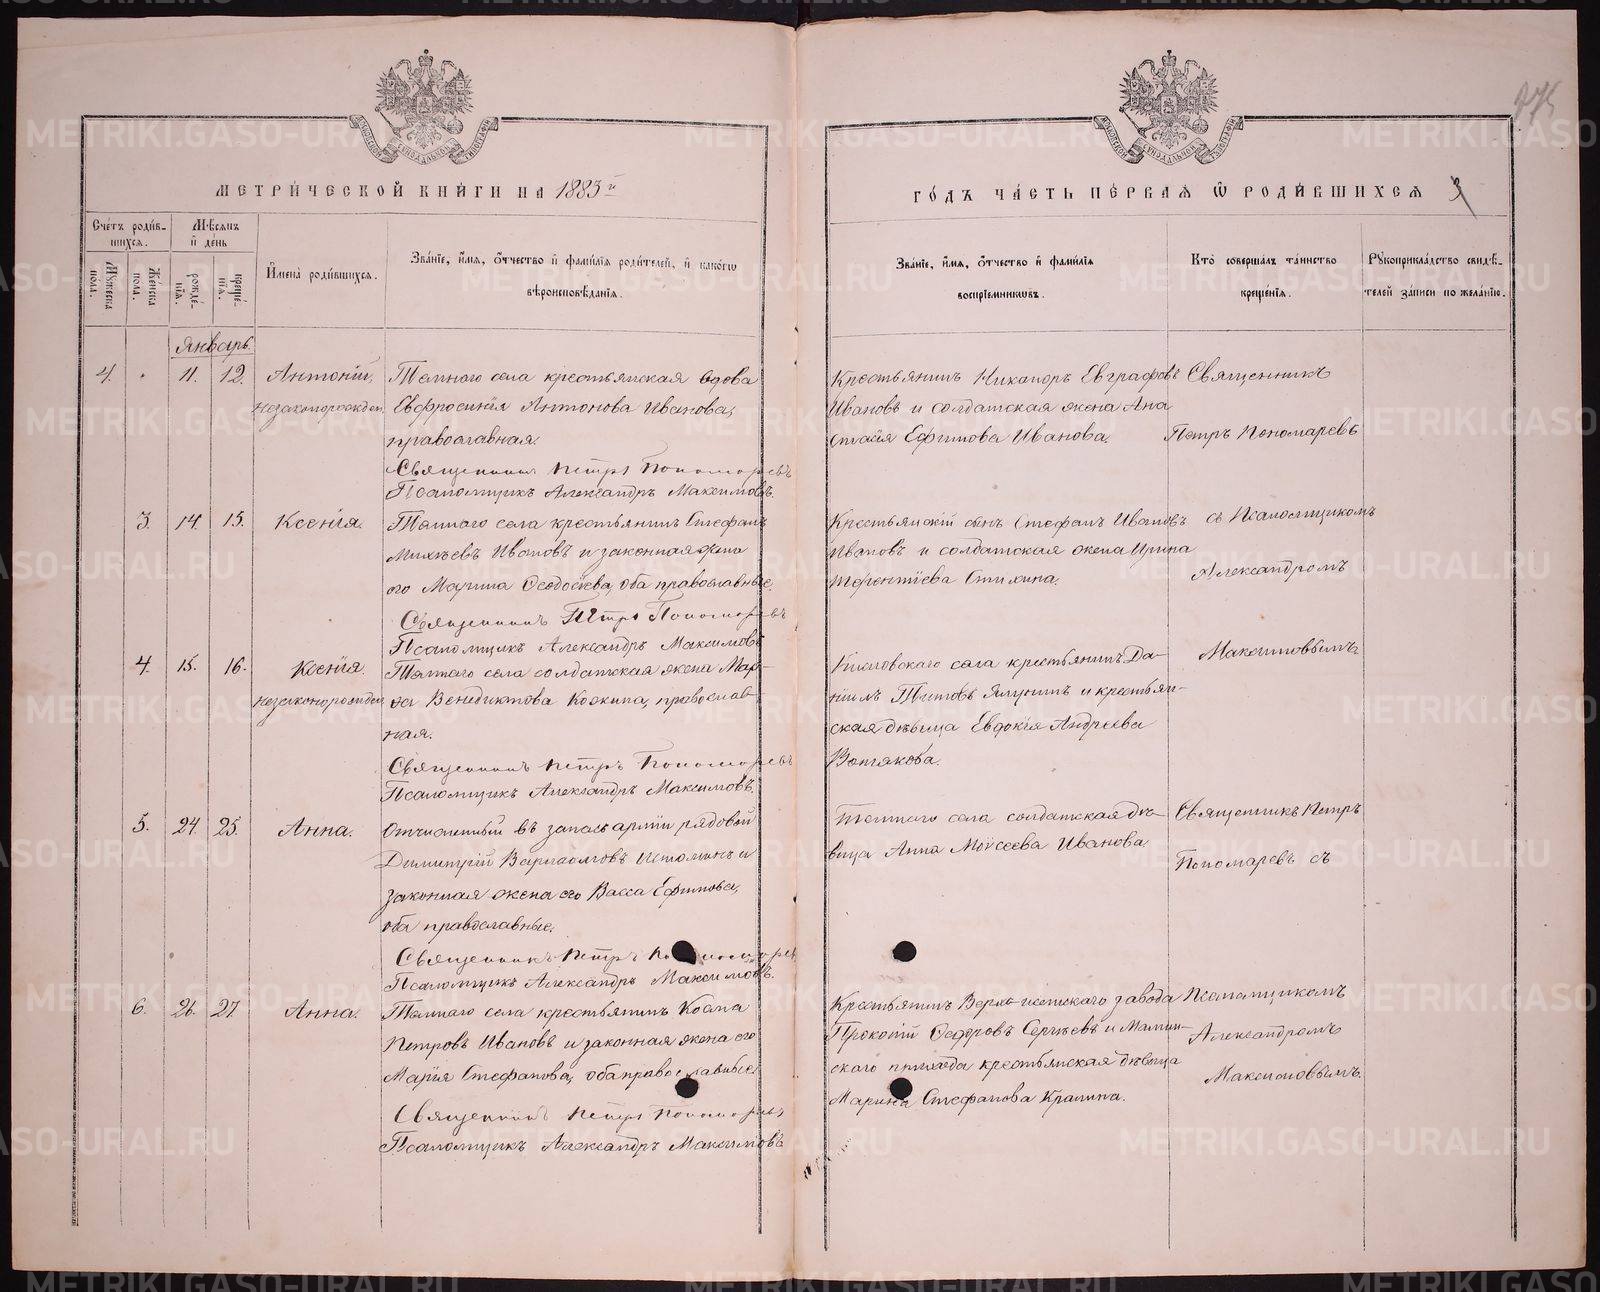 МЕТРИ́ЧЕСКОЙ КНИ́ГИ НА 1883й
ГО́ДЪ ЧА́СТЬ ПЕ́РВАЯ Ѽ РОДИ́ВШИХСЯ
275
3
Сче́тъ роди́в-
шихся.
Мѣ́сяцъ
и҆ де́нь
Му́жеска
пола.
Же́нска
пола.
рожде́-
нїя.
креще́-
нїя.
И҆мена̀ роди́вшихся.
Зва́нїе, и҆́мя, ѻ҆́тчество и҆ фами́лїя роди́телей, и҆ како́гѡ
вѣроисповѣ́данїя.
Зва́нїе, и҆́мя, ѻ҆́тчество и҆ фами́лїя
воспрїе́мниковъ.
Кто̀ соверша́лъ та́инство
креще́нїя.
Рꙋкоприкла́дство свидѣ́-
телей за́писи по жела́нїю.
Январь.
4.
11.
12.
Антоній,
незаконорожден.
Темного села крестьянская вдова
Евфросинія Антонова Иванова,
православная.
Священникъ Петръ Пономаревъ
Псаломщикъ Александръ Максимовъ.
Крестьянинъ Никаноръ Евграфовъ
Ивановъ и солдатская жена Ана
стасія Ефимова Иванова.
Священникъ
Петръ Пономаревъ
3.
14.
15.
Ксенія.
Темнаго села крестьянинъ Стефанъ
Михѣевъ Ивановъ и законная жена
его Марина Ѳеодосіева, оба православные.
Священникъ Петръ Пономаревъ
Псаломщикъ Александръ Максимовъ
Крестьянскій сынъ Стефанъ Ивановъ
Ивановъ и солдатская жена Ирина
Терентіева Стихина.
съ Псаломщикомъ
Александромъ
Максимовымъ
4.
15.
16.
Ксенія
незаконорожден.
Темного села солдатская жена Мар-
ѳа Венедиктова Кожина, православ-
ная.
Священникъ Петръ Пономаревъ
Псаломщикъ Александръ Максимовъ.
Кисловского села крестьянинъ Да-
ніилъ Титовъ Ялунинъ и крестьян-
ская дѣвица Евдокія Андреева
Вотякова.
5.
24.
25.
Анна.
Отчисленный въ запасъ арміи рядовой
Димитрій Варлаамовъ Истоминъ и
законная жена его Васса Ефимова,
оба православные.
Священникъ Петръ Пономаревъ
Псаломщикъ Александръ Максимовъ.
Темного села солдатская дѣ-
вица Анна Моисеева Иванова
Священникъ Петръ
Пономаревъ съ
6.
26.
27.
Анна.
Темнаго села крестьянинъ Косма
Петровъ Ивановъ и законная жена его
Марія Стефанова, оба православные.
Священникъ Петръ Пономаревъ
Псаломщикъ Александръ Максимовъ
Крестьянинъ Верхъ-исетского завода
Прокопій Ѳедоровъ Сергѣевъ и Мамин-
скаго прихода крестьянская дѣвица
Марина Стефанова Крапина.
Псаломщикомъ
Александромъ
Максимовымъ.